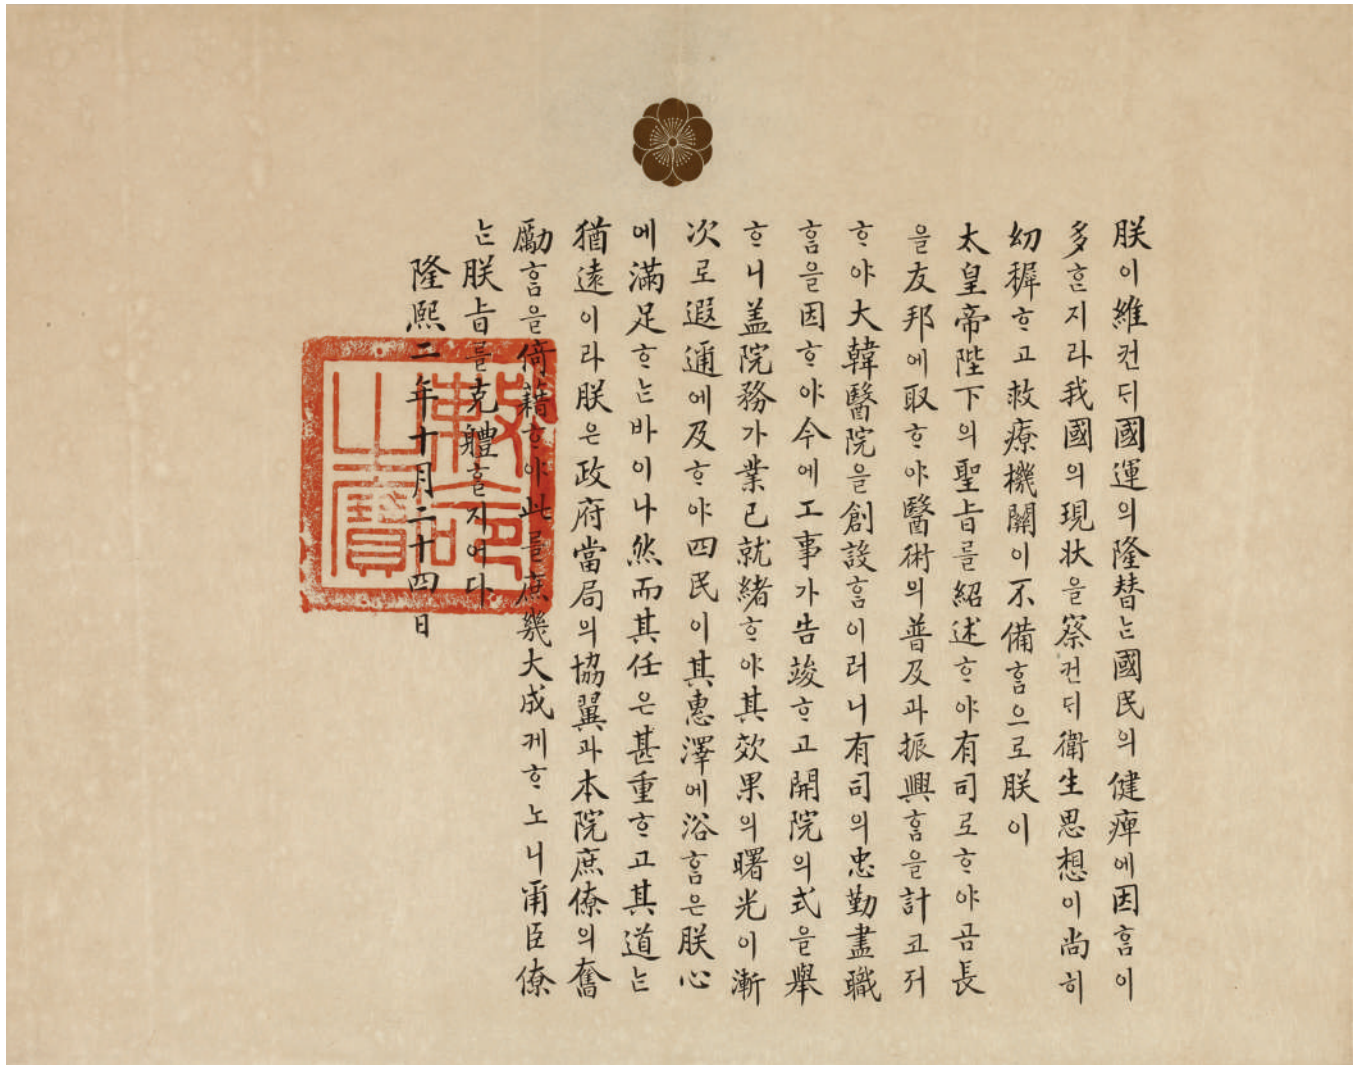 朕이維컨ᄃᆡ國運의隆替ᄂᆞᆫ國民의健痺에因ᄒᆞᆷ이
多ᄒᆞᆫ지라我國의現狀을察컨ᄃᆡ衛生思想이尙히
幼穉ᄒᆞ고救療機關이不備ᄒᆞᆷ으로朕이
太皇帝陛下의聖旨를紹述ᄒᆞ야有司로ᄒᆞ야곰長
을友邦에取ᄒᆞ야醫術의普及과振興ᄒᆞᆷ을計코져
ᄒᆞ야大韓醫院을創設ᄒᆞᆷ이러니有司의忠勤盡職
ᄒᆞᆷ을因ᄒᆞ야今에工事가告竣ᄒᆞ고開院의式을擧
ᄒᆞ니盖院務가業已就緖ᄒᆞ야其效果의曙光이漸
次로遐邇에及ᄒᆞ야四民이其惠澤에浴ᄒᆞᆷ은朕心
에滿足ᄒᆞᄂᆞᆫ바이나然而其任은甚重ᄒᆞ고其道ᄂᆞᆫ
猶遠이라朕은政府當局의協翼과本院庶僚의奮
勵ᄒᆞᆷ을倚藉ᄒᆞ야此를庶幾大成케ᄒᆞ노니甭臣僚
ᄂᆞᆫ朕旨를克體ᄒᆞᆯ지어다
隆熙二年十月二十四日
勅命之寶